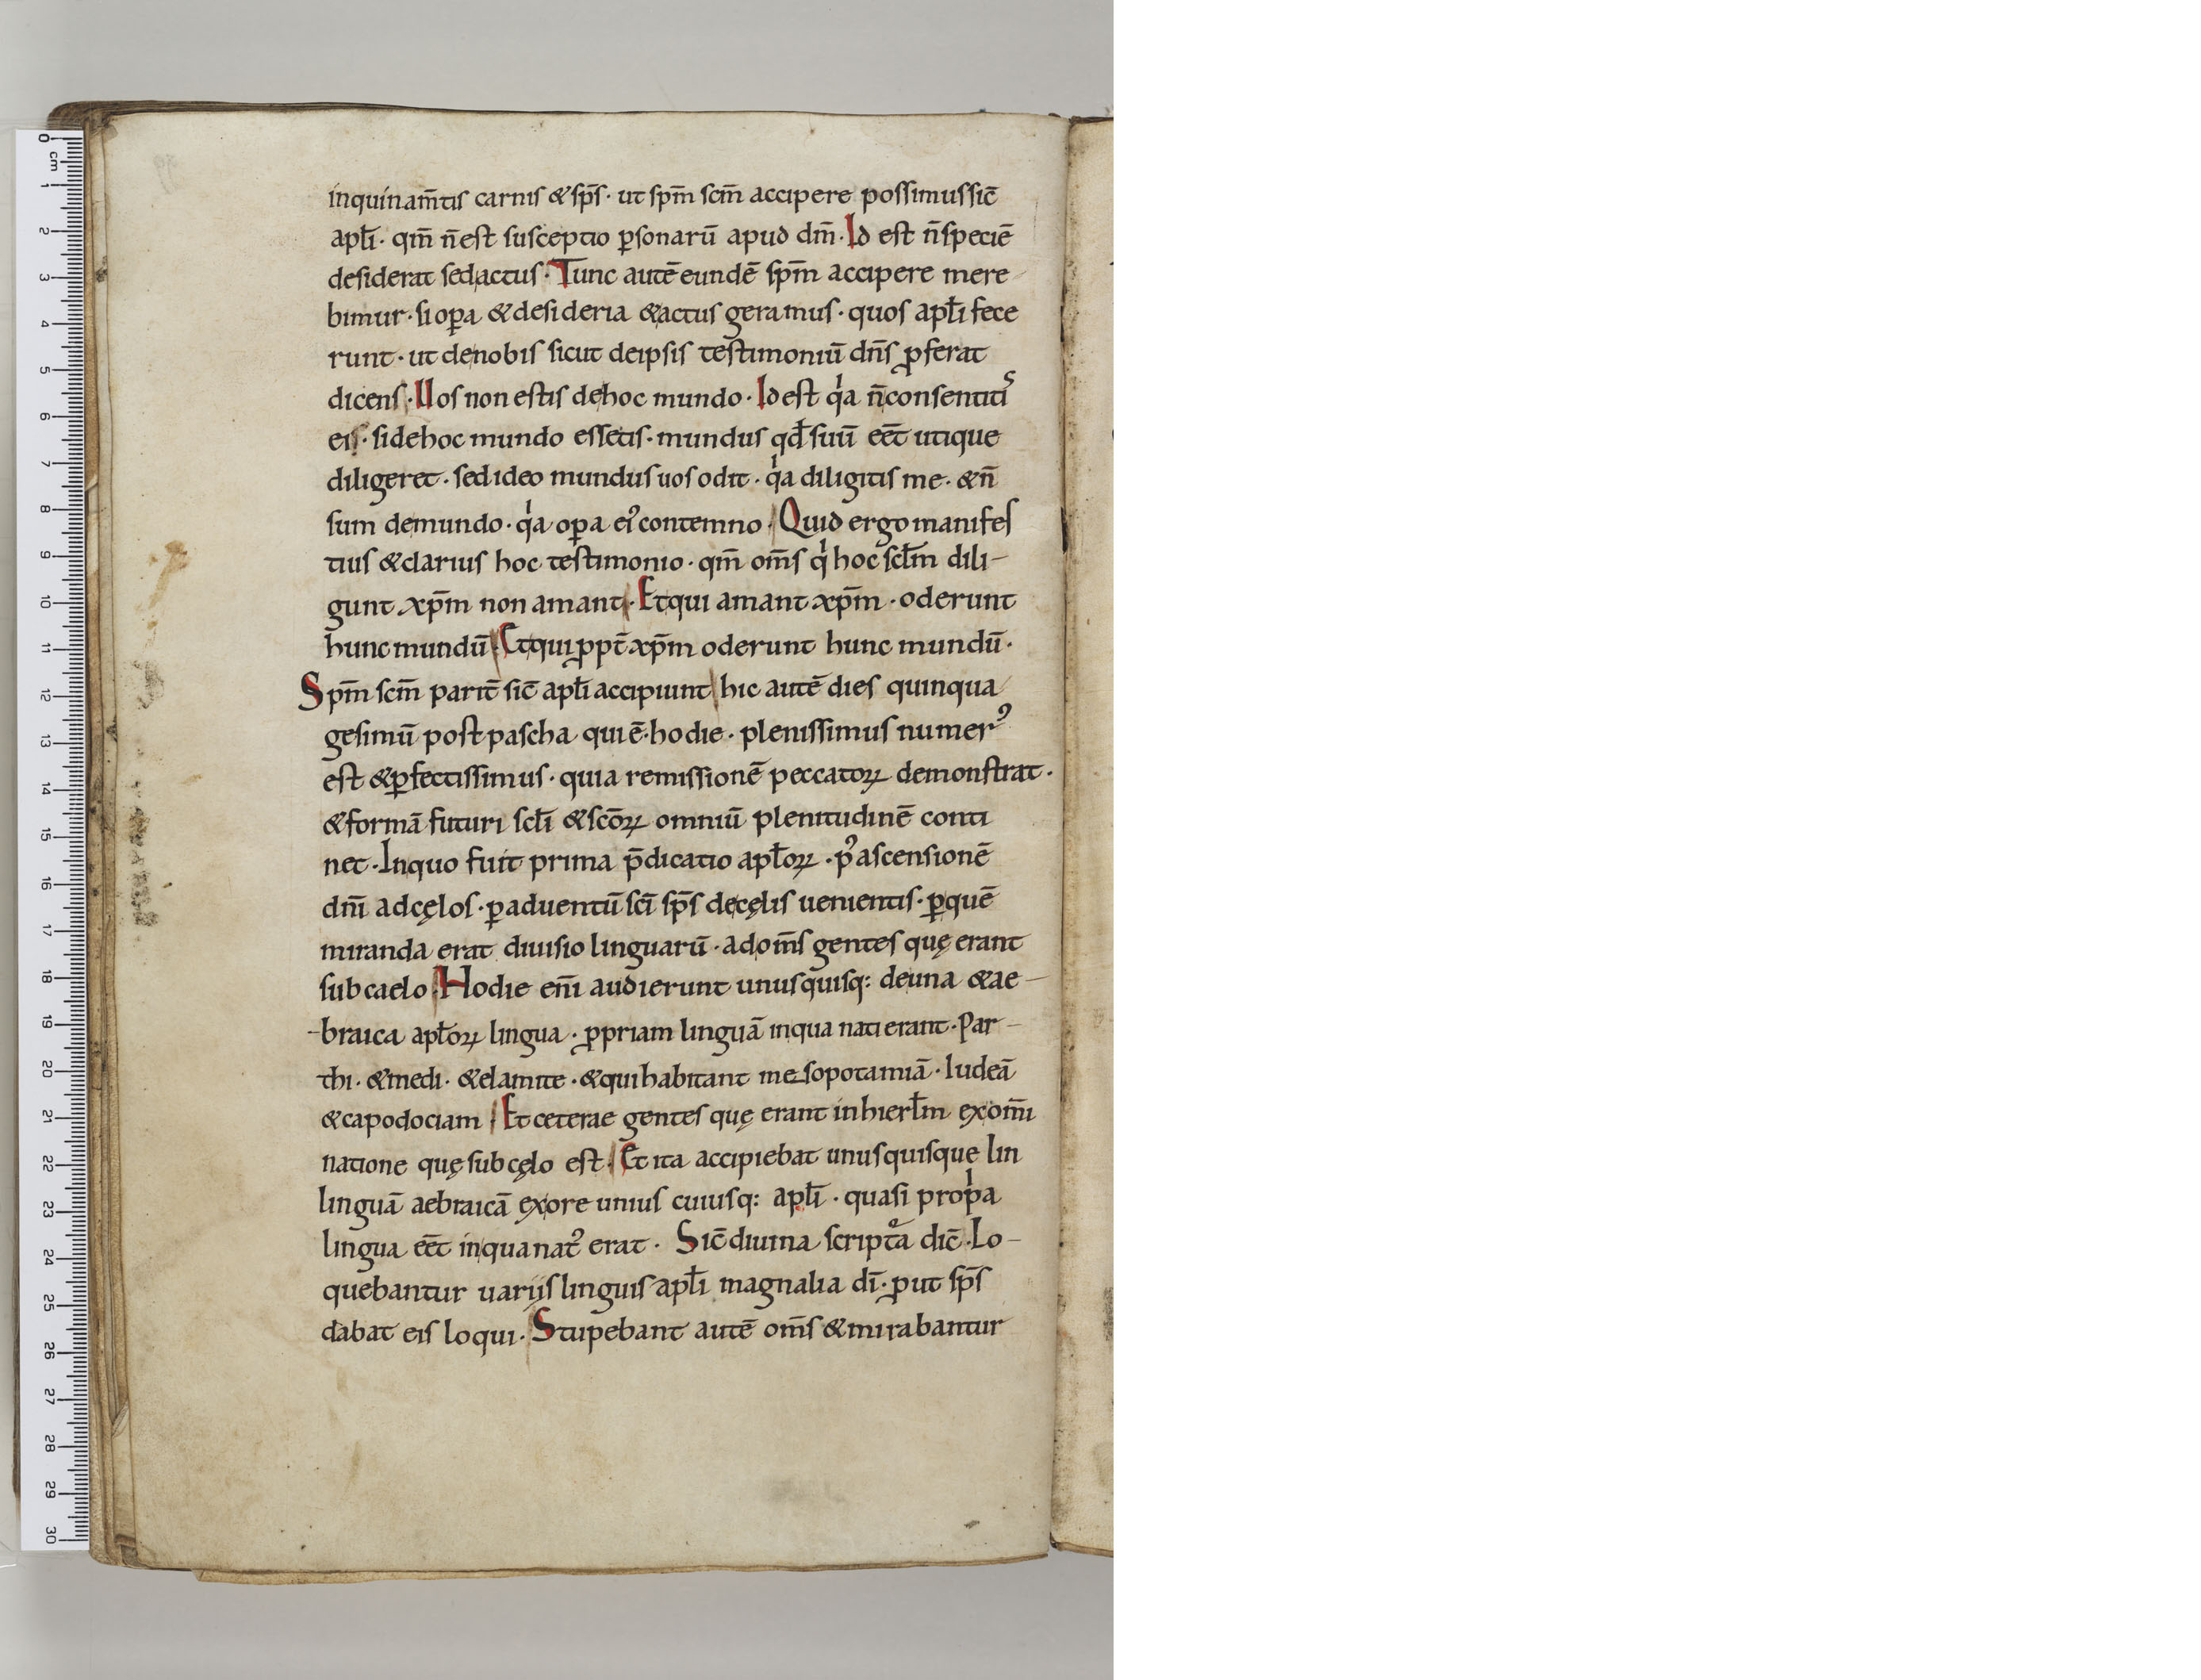 inquinam̄tis carnis & sp̄s · ut sp̄m scm̄ accipere possimus sic̄
apłi · qm̄ n̄ est susceptio ꝑsonarū apud dm̄ · Id est n̄ speciē
desiderat sed actus · Tunc autē eundē sp̄m accipere mere
bimur · si oꝑa & desideria & actus geramus · quos apłi fece
runt · ut de nobis sicut de ipsis testimoniū dn̄s ꝓferat
dicens · Uos non estis de hoc mundo · Id est qͥa n̄ consentitis
eis · si de hoc mundo essetis · mundus qđ suū eēt utique
diligeret · sed ideo mundus uos odit · qͥa diligitis me · & n̄
sum de mundo · qͥa oꝑa ei᾽ contemno · Quid ergo manifes
tius & clarius hoc testimonio · qm̄ om̄s qͥ hoc scłm dili-
gunt xp̄m non amant · Et qui amant xp̄m · oderunt
hunc mundū · Et qui ꝓpt̄ xp̄m oderunt hunc mundū ·
Sp̄m scm̄ parit̄ sic̄ apłi accipiunt hic autē dies quinqua
gesimū post pascha qui ē · hodie · plenissimus numer᾽
est & ꝑfectissimus · quia remissionē peccatoꝝ demonstrat ·
& formā futuri scłi & scōꝝ omniū plenitudinē conti
net · In quo fuit prima p̄dicatio apłoꝝ · p᾽ ascensionē
dn̄i ad cęlos · ꝑ aduentū sc̄i sp̄s de cęlis uenientis · ꝑ quē
miranda erat diuisio linguarū · ad om̄s gentes quę erant
sub caelo · Hodie en̄i audierunt unusquisq: de una & ae-
-braica apłoꝝ lingua · ꝓpriam linguā in qua nati erant · Par-
thi · & medi · & elamite · & qui habitant mesopotamiā · Iudeā
& capodociam · Et ceterae gentes quę erant in hierłm ex om̄i
natione quę sub cęlo est · Et ita accipiebat unusquisque lin
linguā aebraicā ex ore unius cuiusq: apłi · quasi propͥa
lingua eēt in qua nat᾽ erat · Sic̄ diuina scriptᵃa dic̄ · Lo-
quebantur uariis linguis apłi magnalia dī · ꝓut sp̄s
dabat eis loqui · Stupebant autē om̄s & mirabantur